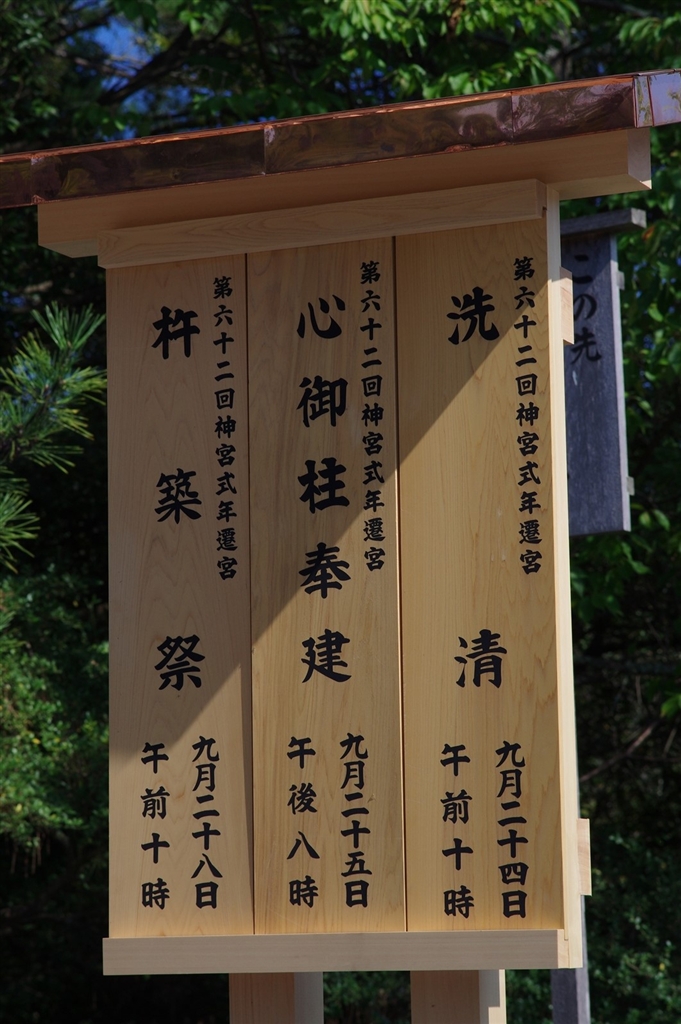 第六十二回神宮式年遷宮
洗清
九月二十四日
午前十時
第六十二回神宮式年遷宮
心御柱奉建
九月二十五日
午後八時
第六十二回神宮式年遷宮
杵築祭
九月二十八日
午前十時
この先